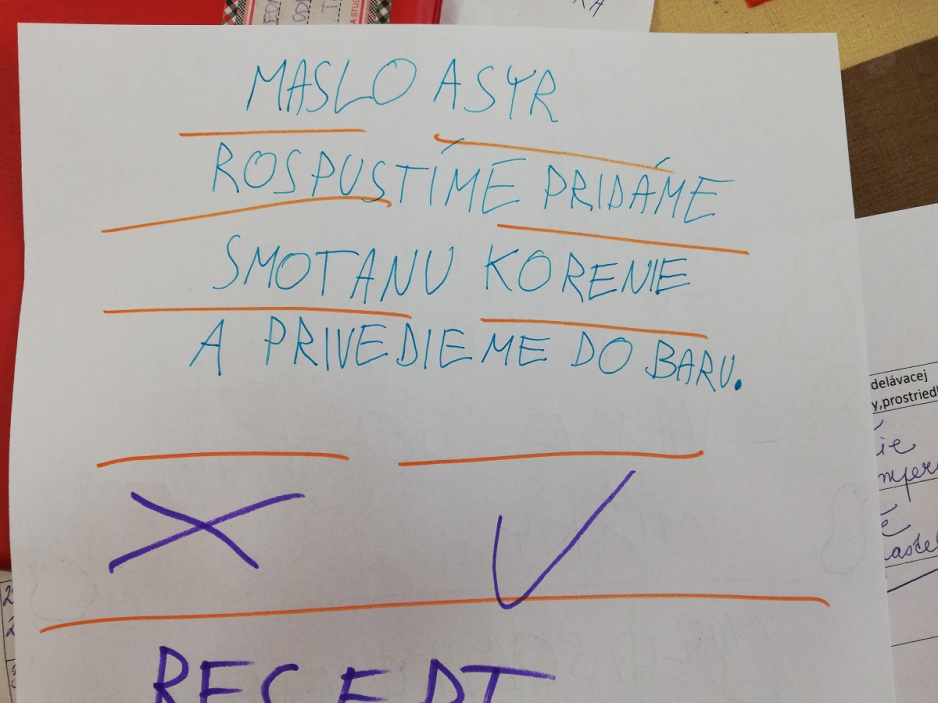 MASLO A SYR
ROSPUSTÍME PRIDÁME
SMOTANU KORENIE
A PRIVEDIEME DO BARU.
RECEPT
delávacej
y,prostried